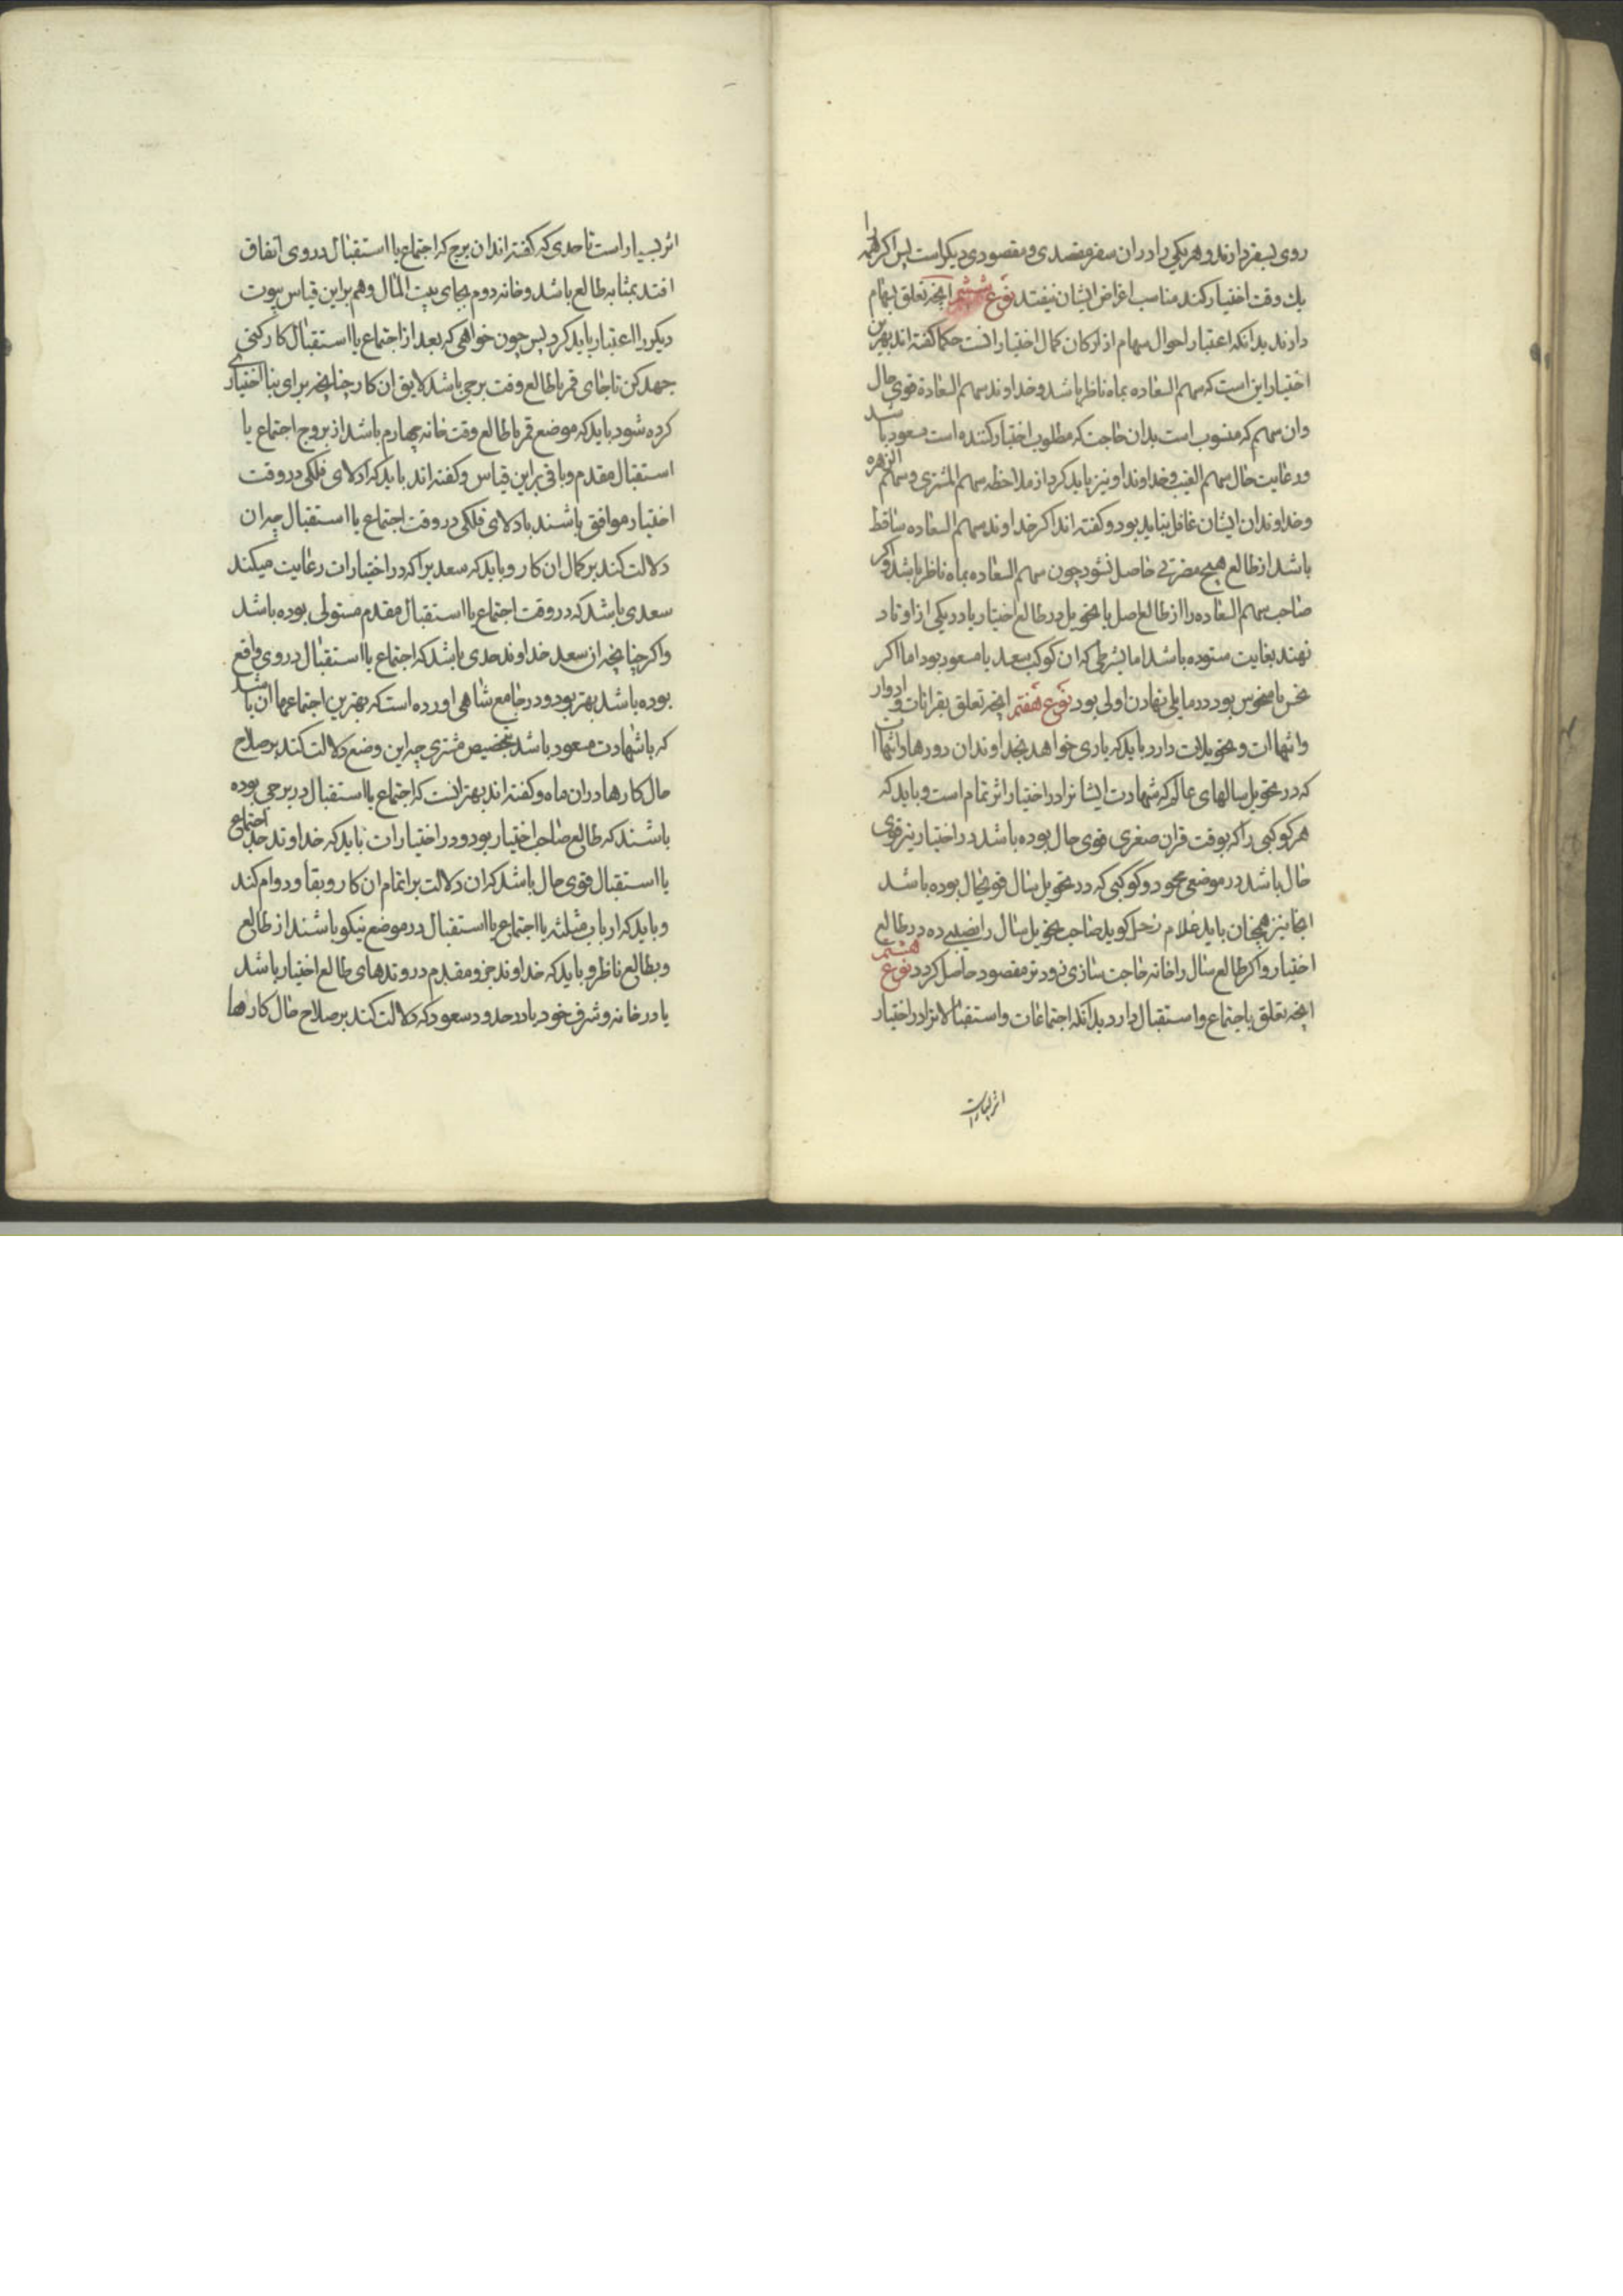 روی بسفر دارند و هر یکی را در ان سفر مقصدی و مقصودی دیکر است پس اکر همه را
یك وقت اختیار کند مناسب اغراض ایشان نیفتد نوع ششم انچه تعلق بسهام
دارند بدانکه اعتبار احوال سهام از ارکان کمال اختیار است حکما کفته اند بهترین
اختیار این است که سهم السعاده بماه ناظر باشد و خداوند سهم السعادة قوی حال
وان سهم که منسوب است بدان حاجت که مطلوب اختیار کننده است مسعود باشد
ورعایت حال سهم الغیب و خداوند او نیز باید کرد از ملاحظه سهم المشتری و سهم الزهره
وخداوندان ایشان غافل نباید بود و کفته اند اکر خداوند سهم السعاده ساقط
باشد از طالع هیچ مضرتی حاصل نشود چون سهم السعاده بماه ناظر باشد و اکر
صاحب سهم السعاده را از طالع اصل یا تحویل در طالع اختیار یا در یکی از اوتاد
نهند بغایت ستوده باشد اما بشرطی که ان کوکب سعد یا مسعود بود اما اکر
نحس یا منحوس بود در مایلی نهادن اولی بود نوع هفتم انچه تعلق بقرانات و ادوار
وانتهاات و تحویلات دارد باید که یاری خواهد بخداوندان دورها و انتهاا
که در تحویل سالهای عالم که شهادت ایشانرا در اختیار اثر تمام است و باید که
هر کوکبی را که بوقت قران صغری قوی حال بوده باشد در اختیار نیز قوی
حال باشد در موضعی محمود و کوکبی که در تحویل سال قویحال بوده باشد
انجا نیز همچنان باید غلام زحل کوید صاحب تحویل سال را نصیبی ده در طالع
اختیار و اکر طالع سال را خانه حاجت سازی زودتر مقصود حاصل کردد نوع هشتم
انچه تعلق باجتماع و استقبال دارد بدانکه اجتماعات و استقبالانرا در اختیار
اثر بسیار است
اثر بسیار است تا حدی که کفته اند ان برج که اجتماع یا استقبال در وی اتفاق
افتد بمثابه طالع باشد و خانه دوم بجای بیت المال و هم براین قیاس بیوت
دیکر را اعتبار باید کرد پس چون خواهی که بعد از اجتماع یا استقبال کار کنی
جهد کن تا جای قمر یا طالع وقت برجی باشد لایق ان کار چنانچه برای بنا اختیاری
کرده شود باید که موضع قمر یا طالع وقت خانه چهارم باشد از بروج اجتماع یا
استقبال مقدم و باقی براین قیاس و کفته اند باید که ادلای فلکی در وقت
اختیار موافق باشند با دلای فلکی در وقت اجتماع یا استقبال چه ان
دلالت کند بر کمال ان کار و باید که سعد برا که در اختیارات رعایت میکند
سعدی باشد که در وقت اجتماع یا استقبال مقدم مستولی بوده باشد
واکر چنانچه ان سعد خداوند حدی باشد که اجتماع یا استقبال در وی واقع
بوده باشد بهتر بود و در جامع شاهی اورده است که بهترین اجتماعها ان باشد
که با شهادت مسعود باشد بتخصیص مشتری چه این وضع دلالت کند بر صلاح
حال کارها در ان ماه و کفته اند بهتر انست که اجتماع یا استقبال در برجی بوده
باشند که طالع صاحب اختیار بود و در اختیارات باید که خداوند حد اجتماع
یا استقبال قوی حال باشد که ان دلالت بر اتمام ان کار و بقا و دوام کند
و باید که ارباب مثلثه یا اجتماع یا استقبال در موضع نیکو باشند از طالع
و بطالع ناظر و باید که خداوند جزو مقدم در وتدهای طالع اختیار باشد
یا در خانه و شرف خود یا در حدود سعود که دلالت کند بر صلاح حال کارها